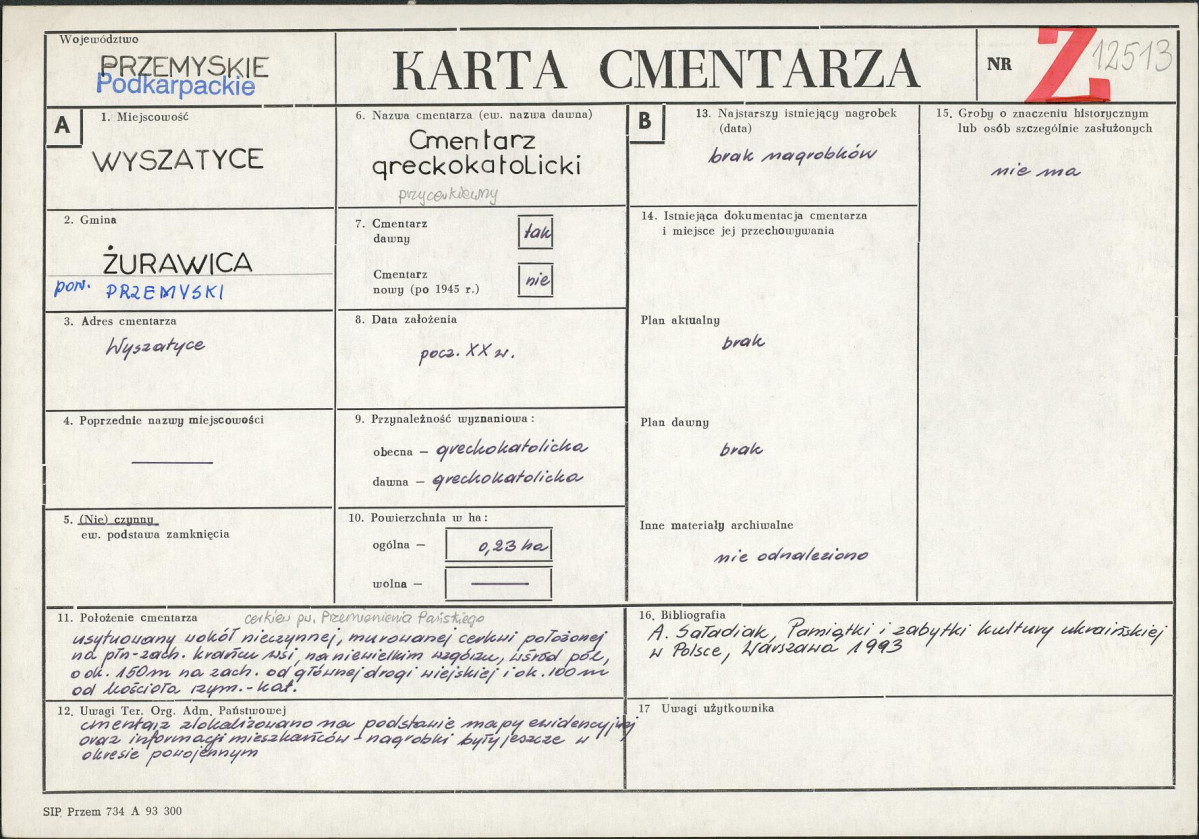 Województwo
PRZEMYSKIE
Podkarpackie
KARTA CMENTARZA
NR
Z
12513
A
1. Miejscowość
WYSZATYCE
2. Gmina
ŻURAWICA
pow. PRZEMYSKI
3. Adres cmentarza
Wyszatyce
4. Poprzednie nazwy miejscowości
—
5. (Nie) czynny
ew. podstawa zamknięcia
6. Nazwa cmentarza (ew. nazwa dawna)
Cmentarz
greckokatolicki
przycerkiewny
7. Cmentarz
dawny
tak
Cmentarz
nowy (po 1945 r.)
nie
8. Data założenia
pocz. XX w.
9. Przynależność wyznaniowa:
obecna — greckokatolicka
dawna — greckokatolicka
10. Powierzchnia w ha:
ogólna — 0,23 ha
wolna — —
B
13. Najstarszy istniejący nagrobek
(data)
brak nagrobków
14. Istniejąca dokumentacja cmentarza
i miejsce jej przechowywania
Plan aktualny
brak
Plan dawny
brak
Inne materiały archiwalne
nie odnaleziono
15. Groby o znaczeniu historycznym
lub osób szczególnie zasłużonych
nie ma
11. Położenie cmentarza
cerkiew pw. Przemienienia Pańskiego
usytuowany wokół nieczynnej, murowanej cerkwi położonej
na płn-zach. krańcu wsi, na niewielkim wzgórzu, wśród pól,
o ok. 150m na zach. od głównej drogi wiejskiej i ok. 100m
od kościoła rzym.-kat.
12. Uwagi Ter. Org. Adm. Państwowej
cmentarz zlokalizowano na podstawie mapy ewidencyjnej
oraz informacji mieszkańców - nagrobki były jeszcze w
okresie powojennym
16. Bibliografia
A. Saładiak, Pamiątki i zabytki kultury ukraińskiej
w Polsce, Warszawa 1993
17 Uwagi użytkownika
SIP Przem 734 A 93 300